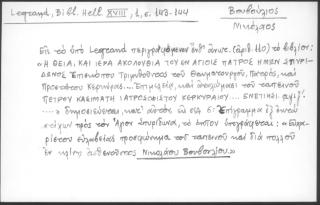 Legrand, Bibl. Hell. XVIII, 1, σ. 143-144
Βουβούλιος
Νικόλαος
Εἰς τὸ ὑπὸ Legrand περιγραφόμενον ὑπ' ἀριθ. (ἀριθ. 110) τὸ βιβλίον:
«Η ΘΕΙΑ ΚΑΙ ΙΕΡΑ ΑΚΟΛΟΥΘΙΑ ΤΟΥ ΕΝ ΑΓΙΟΙΣ ΠΑΤΡΟΣ ΗΜΩΝ ΣΠΥΡΙ-
ΔΩΝΟΣ Ἐπισκόπου Τριμυθοῦντος τοῦ Θαυματουργοῦ, Πατρὸς, καὶ
Προστάτου Κερκύρας... Ἐπιμελείᾳ, καὶ ἀναλώμασι τοῦ ταπεινοῦ
ΠΕΤΡΟΥ ΚΑΣΙΜΑΤΗ ΙΑΤΡΟΣΟΦΙΣΤΟΥ ΚΕΡΚΥΡΑΙΟΥ.... ΕΝΕΤΙΗΣΙ
....» δημοσιεύεται κατ' αὐτὸν ὡς ἑξῆς «Ἐπίγραμμα ἐξ ὀκτὼ
στίχων πρὸς τὸν Ἅγιον Σπυρίδωνα, τὸ ὁποῖον ὑπογράφεται: «
εὐλαβείας προσκύνημα τοῦ ταπεινοῦ καὶ διὰ πολλοῦ
ἐν ἀσθενοῦντος Νικολάου Βουβουλίου.»